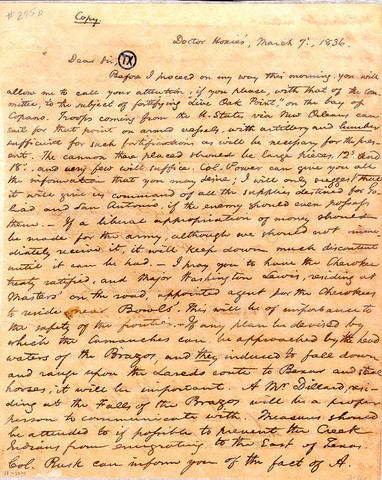 # 2750
Copy
Doctor Hoxies', March 7th, 1836.
Dear Sir, IX
Before I proceed on my way this morning, you will
allow me to call your attention, if you please, with that of the Com-
mittee, to the subject of fortifying "Live Oak Point," on the bay of
Copano. Troops coming from the U. States via New Orleans can
sail for that point on armed vessels, with artillery and lumber
sufficient for such fortifications as will be necessary for the pres-
ent. The cannon there placed should be large pieces, 12s and
18s, and very few will suffice. Col. Power can give you all
the information that you may desire; I will only suggest that
it will give us command of all the supplies destined for Go-
liad and San Antonio, if the enemy should even possess
them. — If a liberal appropriation of money should
be made for the army, although we should not imme-
diately receive it, it will keep down much discontent
until it can be had. — I pray you to have the Cherokee
treaty ratified, and Major Washington Lewis, residing at
Masters' on the road, appointed agent for the Cherokees
to reside near Bowls'. This will be of importance to
the safety of the frontier. — If any plan be devised by
which the Comanches can be approached by the head
waters of the Brazos, and they induced to fall down
and range upon the Laredo route to Bexar and steal
horses, it will be important. A Mr. Dillard, resi-
ding at the Falls of the Brazos will be a proper
person to communicate with. Measures should
be attended to if possible to prevent the Creek
Indians from emigrating to the East of Texas.
Col. Rusk can inform you of the fact of A.